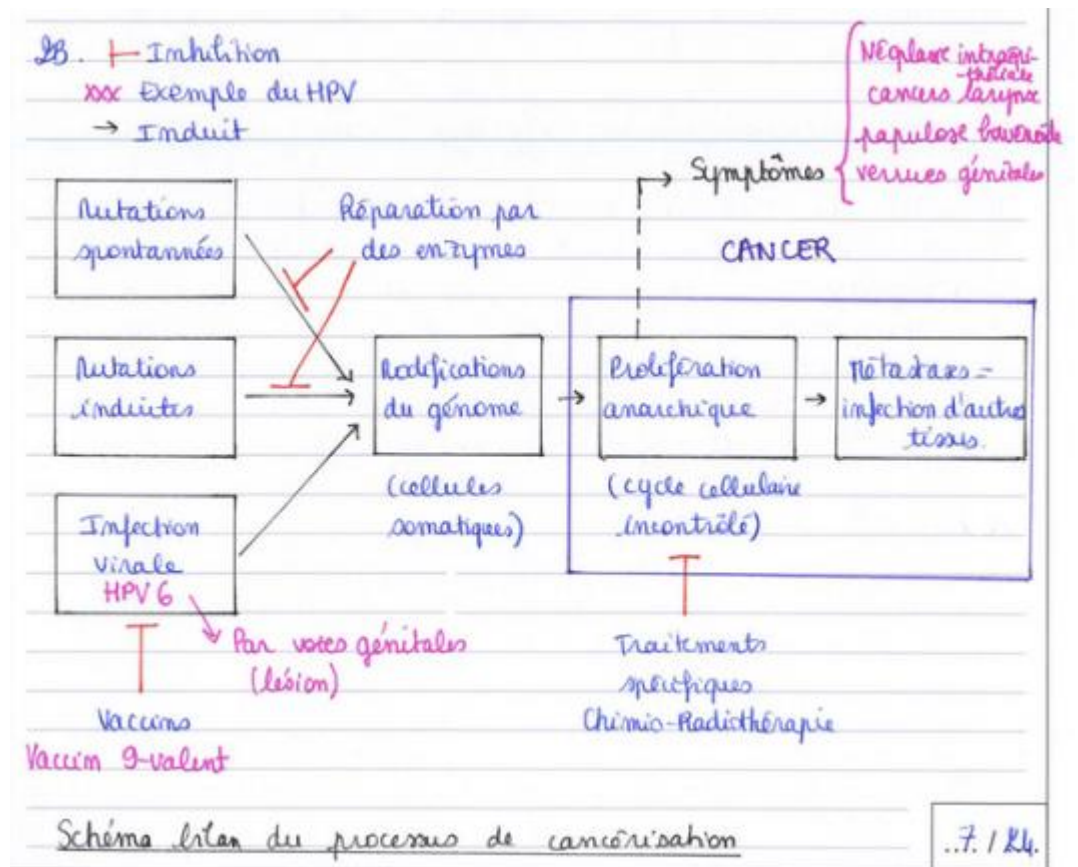 2B. Inhibition
xxx Exemple du HPV
→ Induit
Néoplasie intraépi-
théliale
cancers larynx
papulose bowénoïde
verrues génitales
Symptômes
Mutations
spontannées
Réparation par
des enzymes
CANCER
Mutations
induites
Modifications
du génome
(cellules
somatiques)
Prolifération
anarchique
(cycle cellulaire
incontrôlé)
Métastases =
infection d'autres
tissus.
Infection
virale
HPV 6
Par voies génitales
(lésion)
Vaccins
Vaccin 9-valent
Traitements
spécifiques
Chimio-Radiothérapie
Schéma bilan du processus de cancérisation
..7. / 24.